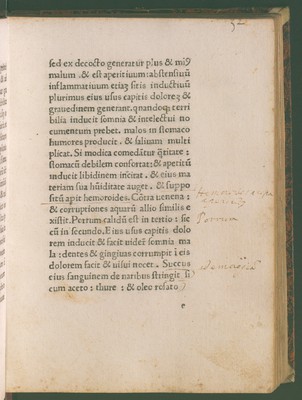 52
sed ex decocto generatur plus & miꝰ
malum . & est aperitiuum: abstersiuū
inflammatiuum etiaꝫ sitis inductiuū
plurimus eius usus capitis doloreꝫ &
grauedinem generant. quandoqꝫ terri
bilia inducit somnia & intelectui no
cumentum prebet. malos in stomaco
humores producit . & saliuam multi
plicat. Si modica comedātur q̄titate :
stomacū debilem confortat: & aperitū
inducit libidinem incitat . & eius ma
teriam sua hūiditate auget . & suppo
sitū apit hemoroides. Cōtra uenena :
& corruptiones aquarū allio similis e
xistit. Porrum calidū est in tertio : sic
cū in secundo. Eius usus capitis dolo
rem inducit & facit uideī somnia ma
la : dentes & gingiuas corrumpit ī eis
dolorem facit & uisui nocet . Succus
eius sanguinem de naribus stringit si
cum aceto : thure : & oleo rosato
Porrum
e